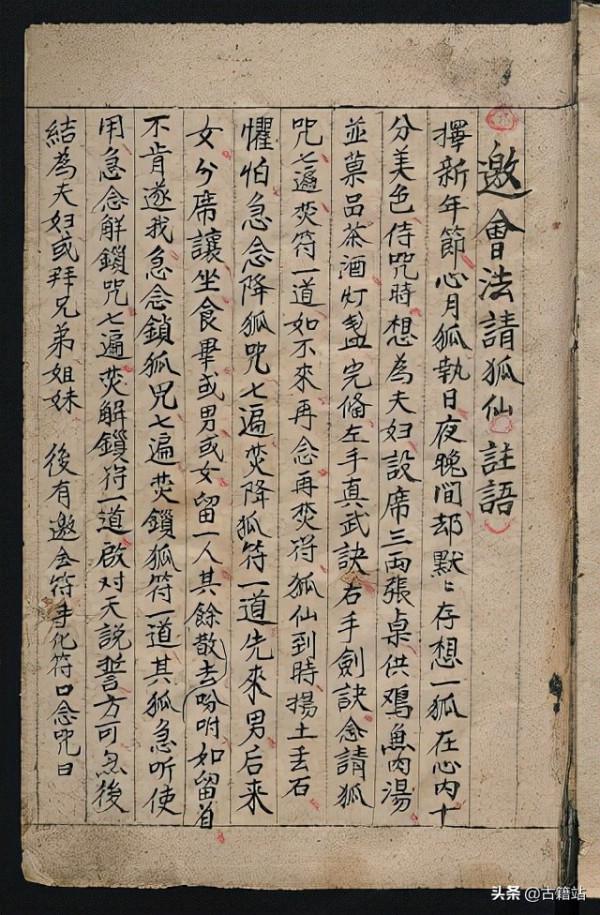 邀會法請狐仙註語
擇新年節心月狐執日夜晚间却默〻存想一狐在心内十
分美色侍咒時想為夫妇設席三両張桌供鸡魚肉湯
並菓品茶酒灯盏完俻左手真武訣右手劍訣念請狐
咒七遍焚符一道如不來再念再焚符狐仙到時揚土丢石
懼怕急念降狐咒七遍焚降狐符一道先來男后来
女分席讓坐食畢或男或女留一人其餘散去吩咐如留首
不肯遂我急念鎖狐咒七遍焚鎖狐符一道其狐急听使
用急念解鎖咒七遍焚解鎖符一道啟对天説誓方可然後
結為夫妇或拜兄弟姐妹 後有邀会符手化符口念咒曰
头条 @古籍站